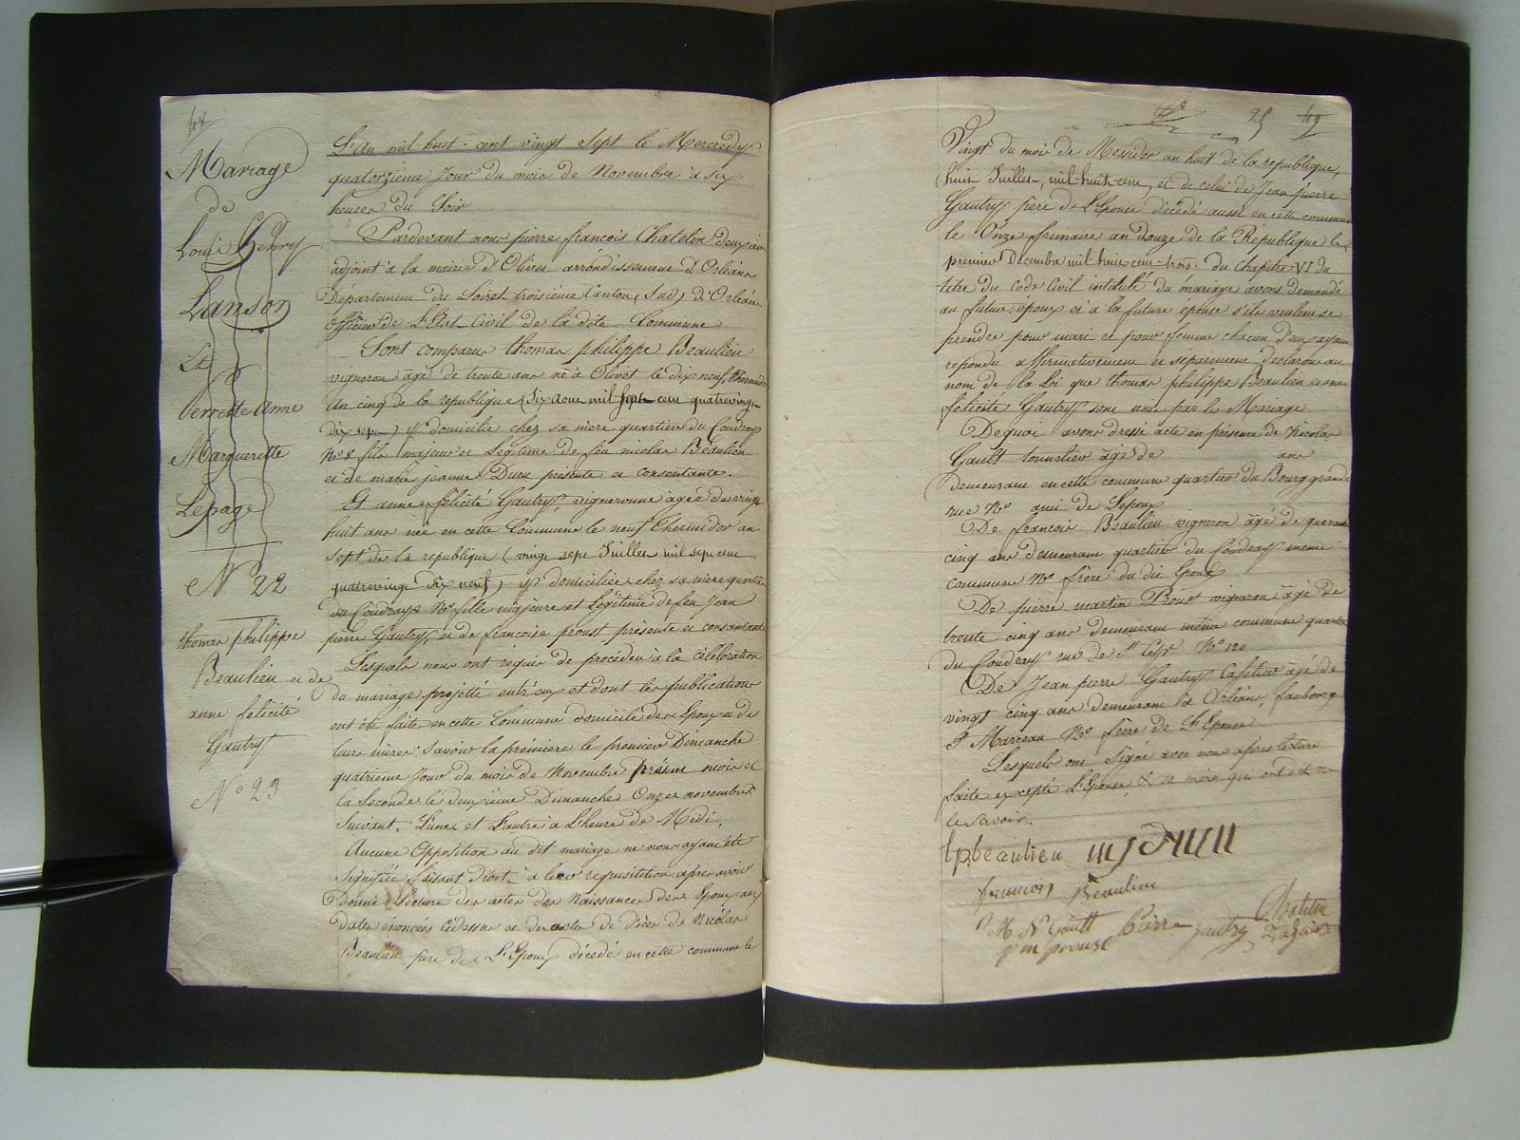 48
Mariage
de
Louis Henry
Lanson
Et
Perrette Anne
Marguerite
Lepage
N° 22
thomas philippe
Beaulieu et de
anne felicité
Gautry
N° 23
L'an mil huit-cent vingt sept le Mercredy
quatorzieme Jour du mois de Novembre à six
heures du Soir
Pardevant nous pierre françois Chatelin deuxième
adjoint à la mairie d'Olivet arrondissement d'Orléans
Département du Loiret troisième Canton (Sud) d'Orléans
officier de L'Etat Civil de la dite Commune
Sont comparus thomas philippe Beaulieu
vigneron agé de trente ans né à Olivet le dix neuf thermidor
an cinq de la republique (six aout mil sept cent quatrevingt
dix sept) y domicilié chez sa mere quartier du Coudray
N° 8 fils majeur et Legitime de feu nicolas Beaulieu
et de marie jeanne présente et consentante.
Et anne felicité Gautry, vigneronne agée de vingt
huit ans née en cette Commune le neuf Thermidor an
sept de la republique (vingt sept Juillet mil sept cent
quatrevingt dix neuf) y domiciliée chez sa mere quartier
du Coudray N° fille majeure et Legitime de feu Jean
pierre Gautry et de françoise proust présente et consentante
Lesquels nous ont requis de procéder à la célébration
du mariage projetté entr'eux et dont les publications
ont été faite en cette Commune domicile des Epoux et de
leurs meres: Savoir la première le premier Dimanche
quatrieme Jour du mois de Novembre présent mois et
la Seconde le deuxieme Dimanche Onze novembre
Suivant. L'une et L'autre à L'heure de Midi,
Aucune Opposition au dit mariage ne nous ayant été
Signifiée faisant droit à leur requisition apres avoir
donné Lecture des actes de Naissances des Epoux aux
dates énoncées cidessus et des actes de décès de Nicolas
Beaulieu pere de L'Epoux décédé en cette commune le
25 49
Vingt du mois de Messidor an huit de la republique,
(huit Juillet, mil huit cent, et de celui de Jean pierre
Gautry pere de L'Epouse décédé aussi en cette commune
le Onze frimaire an Douze de la République le
premier Decembre mil huit cent-trois. du Chapitre VI du
titre du code Civil intitulé du mariage avons demandé
au futur époux et à la future epouse s'ils veulent se
prendre pour mari et pour femme chacun d'eux ayant
repondu affirmativement et séparement déclarons au
nom de la Loi que thomas philippe Beaulieu et anne
felicité Gautry sont unis par le Mariage
Dequoi avons dressé acte en présence de Nicolas
Gault tourutier agé de ans
demeurant en cette commune quartier du Bourg grande
rue N° ami de
De françois Beaulieu vigneron âgé de quarante
cinq ans demeurant quartier du Coudray même
commune N° frère du dit Epoux
De pierre martin Proust vigneron âgé de
trente cinq ans demeurant même commune quartier
du Coudray rue de N°
De Jean pierre Gautry agé de
vingt cinq ans demeurant à Orléans, faubourg
St Marceau N° frère de L'Epouse
Lesquels ont Signé avec nous apres lecture
faite excepté L'Epouse & sa mere qui ont dit ne
le savoir.
t.p.beaulieu
francois Beaulieu
Gault pierre gautry Chatelin
p m proust